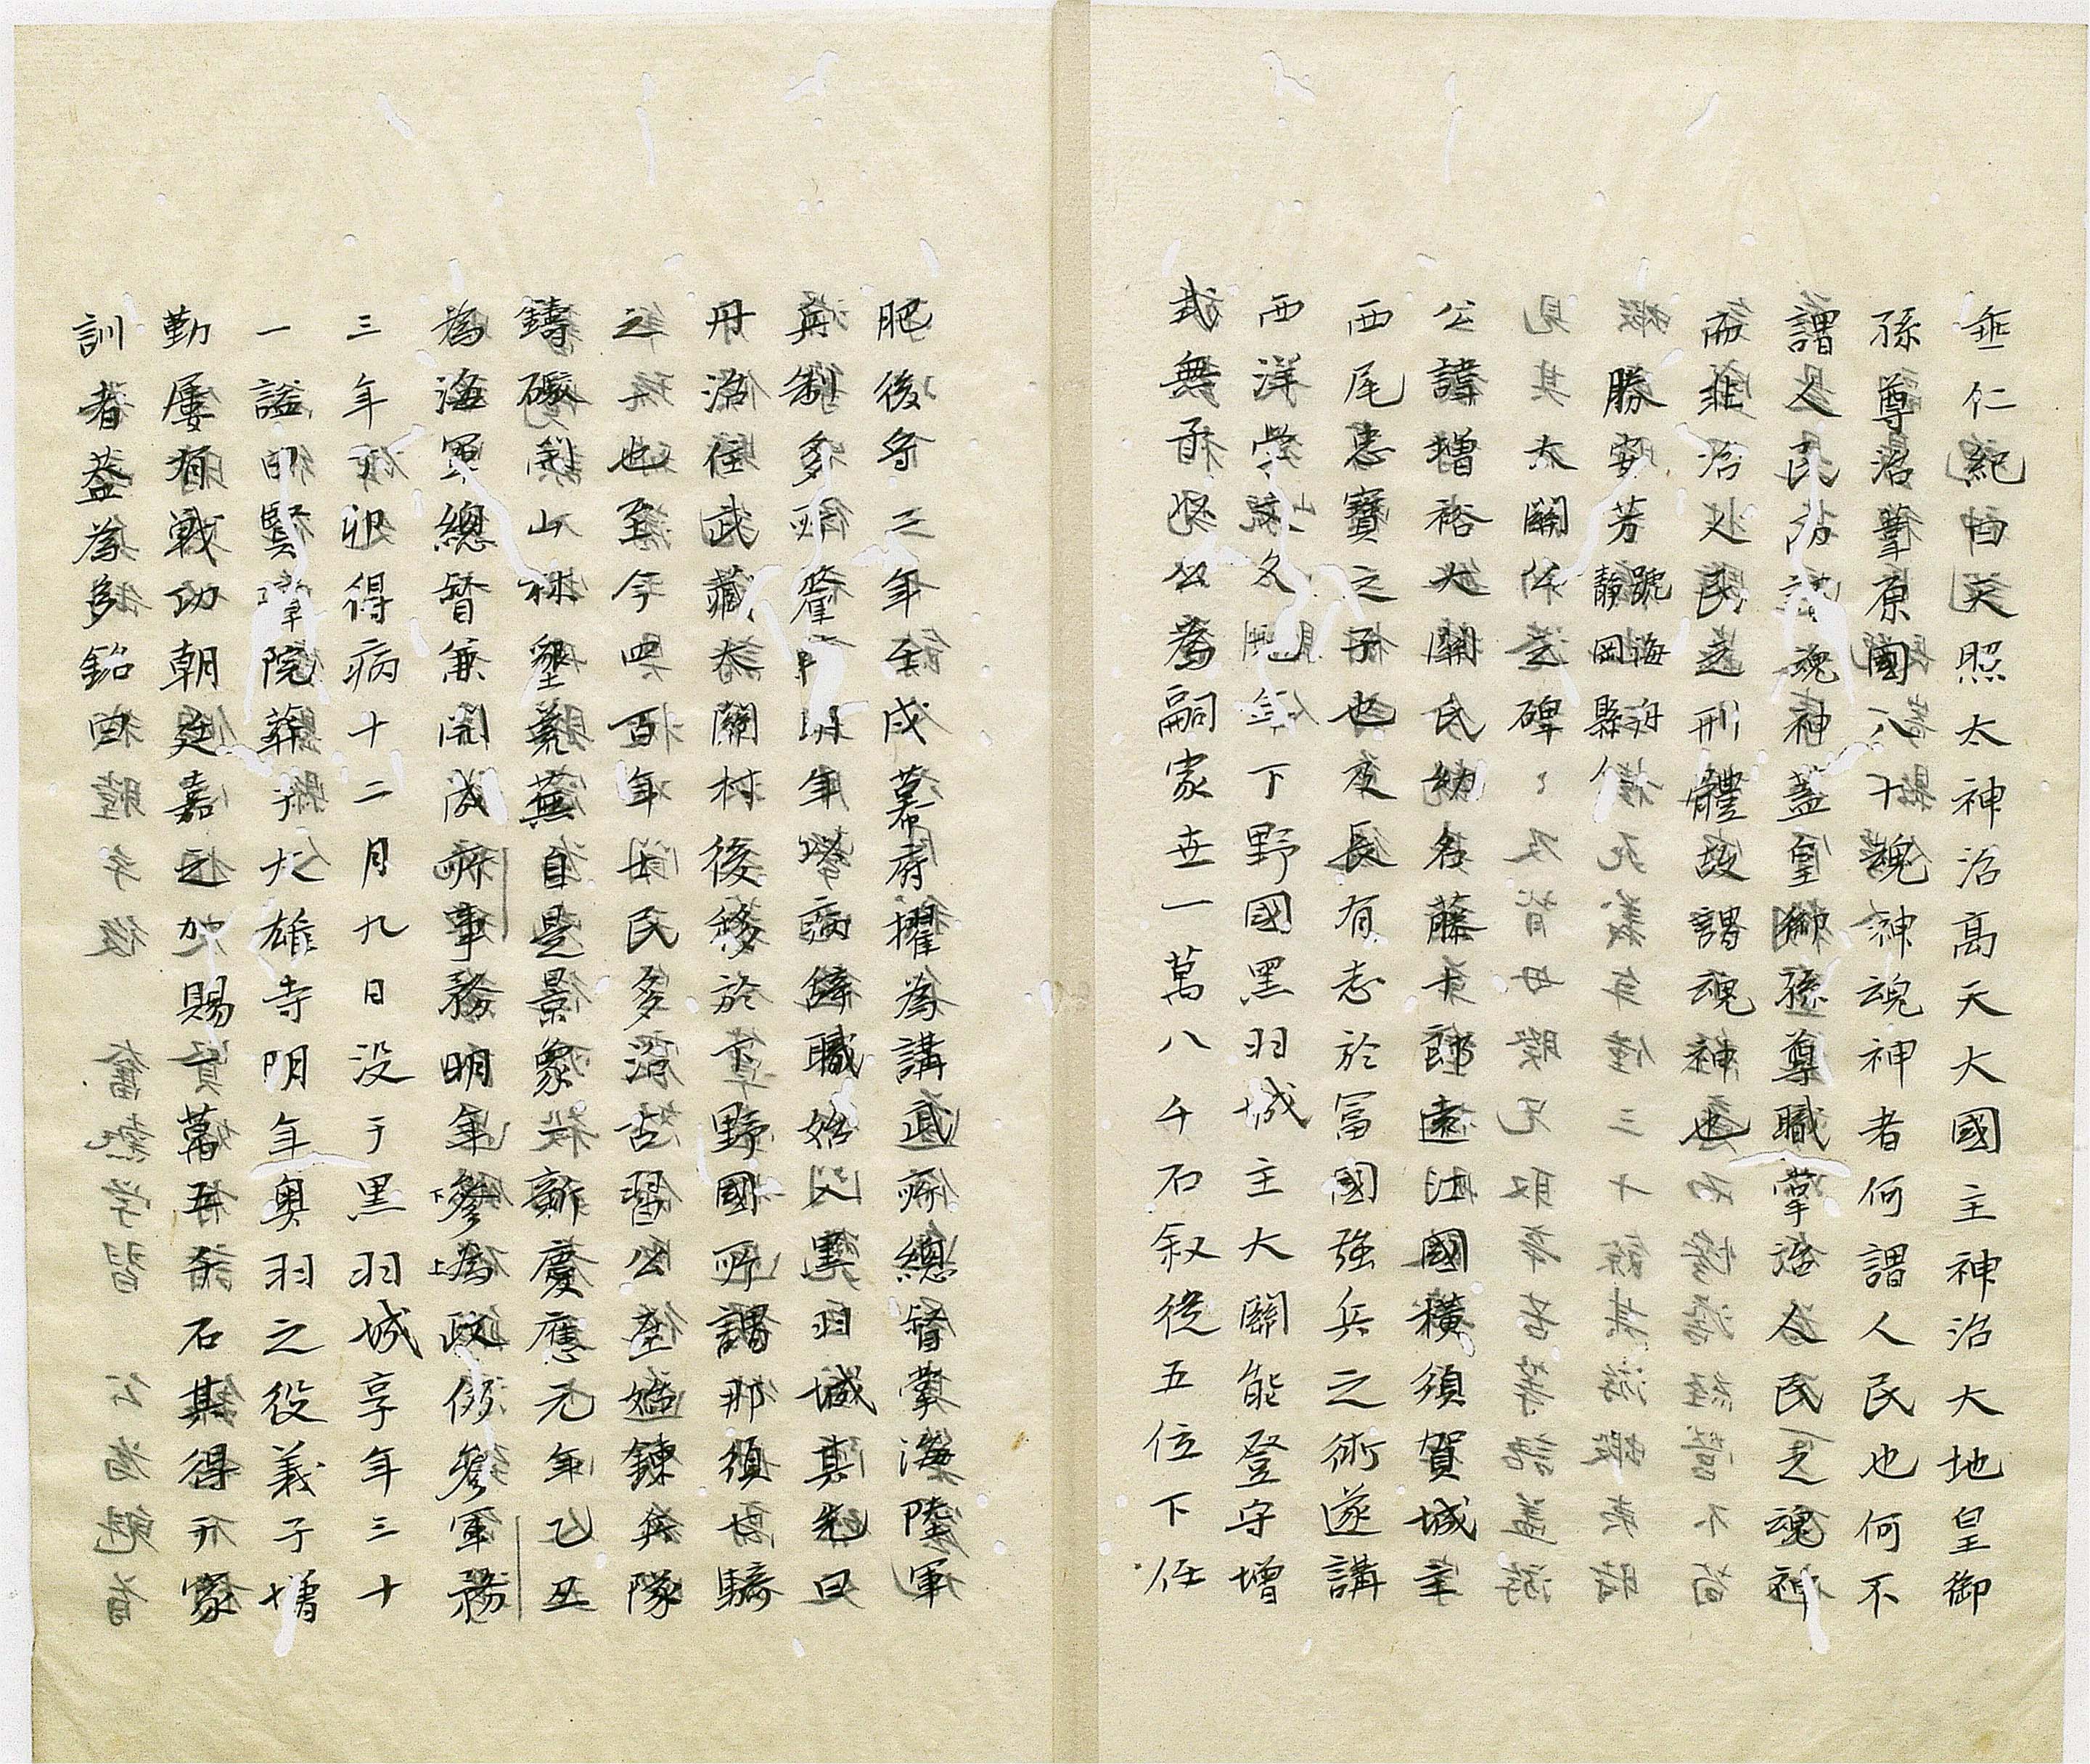 垂仁紀曰天照太神治高天大國主神治大地皇御
孫尊治葦原國八十魂神魂神者何謂人民也何不
謂人民而謂魂神蓋皇御孫尊職掌治人民之魂神
而非治人民之形體故謂魂神也
勝安芳 號海舟 靜岡縣人
見其大關公之碑
公諱增裕大關氏幼名藤十郎遠江國橫須賀城主
西尾忠寶之子也夙長有志於冨國強兵之術遂講
西洋學文久元年下野國黒羽城主大關能登守增
武無子以公為嗣家世一萬八千石叙從五位下任
肥後守二年壬戌幕府擢為講武所總督掌海陸軍
兵制多所釐革明年嬰病辭職始入黒羽城其先曰
丹治住武藏大關村後移於下野國所謂那須七騎
之一也至今四百年士民多沿古習公至始鍊兵隊
鑄礮開山林墾荒蕪自是景象一新慶應元年乙丑
為海軍總督兼開成所事務明年參為政仍參軍務
三年丁卯得病十二月九日没于黒羽城享年三十
一諡曰賢輝院葬于大雄寺明年奥羽之役義子增
勤屢有戰功朝廷嘉之加賜一萬五千石其得于家
訓者蓋為多銘曰